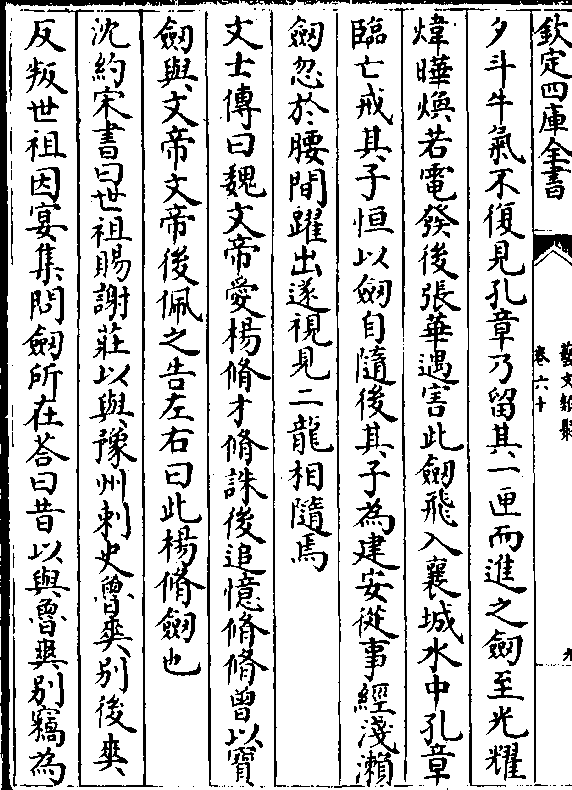 欽定四庫全書
藝文類聚
卷六十
九
夕斗牛氣不復見孔章乃留其一匣而進之劒至光耀
煒曄煥若電發後張華遇害此劒飛入襄城水中孔章
臨亡戒其子恒以劒自隨後其子為建安從事經淺瀨
劒忽於腰間躍出遂視見二龍相隨焉
文士傳曰魏文帝愛楊脩才脩誅後追憶脩脩曾以寳
劒與文帝文帝後佩之告左右曰此楊脩劒也
沈約宋書曰世祖賜謝莊以與豫州刺史魯爽别後爽
反叛世祖因宴集問劒所在荅曰昔以與魯爽别竊為